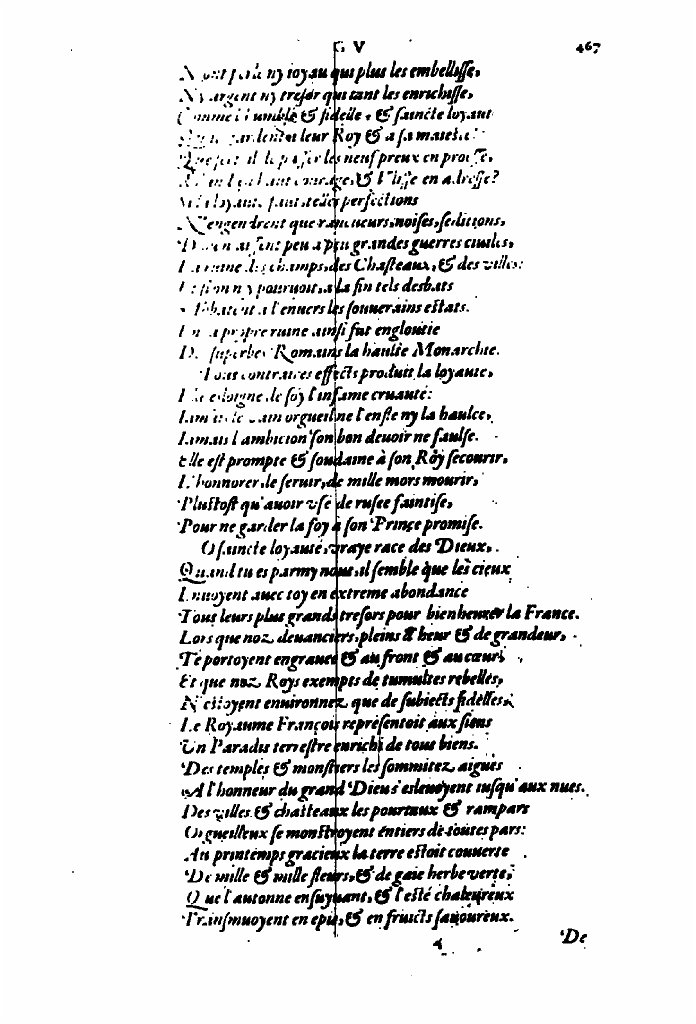 G V 467
ny ioyau qui plus les embellisse,
Ny argent ny tresor qui tant les enrichisse,
Comme l'humble & fidelle, & saincte loyauté
leur Roy & a sa maiesté
les neuf preux en proësse,
courage, & Vlisse en adresse?
perfections
N'engendrent que rancueurs, noises, seditions,
peu a peu grandes guerres ciuiles,
La ruine des champs, des Chasteaux, & des villes:
n'y pouruoit, a la fin tels desbats
a l'enuers les souuerains estats.
En sa propre ruine ainsi fut engloutie
Des superbes Romains la haulte Monarchie.
Tous contraires effects produit la loyauté,
esloigne de soy l'infame cruauté:
Iamais le vain orgueil ne l'enfle ny la haulce,
Iamais l'ambicion son bon deuoir ne faulse.
Elle est prompte & soudaine à son Roy secourir,
L'honnorer, le seruir, de mille mors mourir,
Plustost qu'auoir vsé de rusee faintise,
Pour ne garder la foy à son Prince promise.
O saincte loyauté, vraye race des Dieux,
Quand tu es parmy nous, il semble que les cieux
Enuoyent auec toy en extreme abondance
Tous leurs plus grands tresors pour bienheurer la France.
Lors que noz deuanciers, pleins d'heur & de grandeur,
Te portoyent engrauee & au front & au cœur,
Et que noz Roys exempts de tumultes rebelles,
N'estoyent enuironnez que de subiects fidelles,
Le Royaume François representoit aux siens
Vn Paradis terrestre enrichi de tous biens.
Des temples & monstiers les sommitez aigues
A l'honneur du grand Dieu s'esleuoyent iusqu'aux nues.
Des villes & chasteaux les pourtaux & rampars
Orgueilleux se monstroyent entiers de toutes pars:
Au printemps gracieux la terre estoit couuerte
De mille & mille fleurs, & de gaie herbe verte,
Que l'autonne ensuyuant, & l'esté chaleureux
Transmuoyent en epis, & en fruicts sauoureux.
De